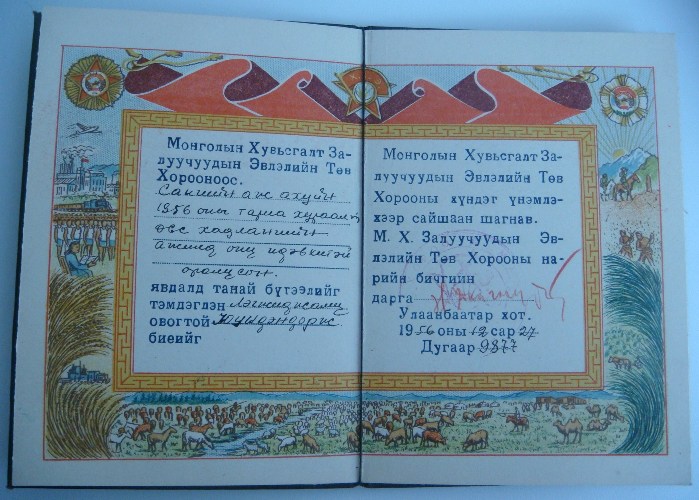 Монголын Хувьсгалт За-
луучуудын Эвлэлийн Төв
Хорооноос.
Сангийн аж ахуйн
1956 оны тариа хураалт,
өвс хадлангийн
ажилд онц идэвхитэй
оролцсон.
явдалд танай бүтээлийг
тэмдэглэн
овогтой
биеийг
Монголын Хувьсгалт За-
луучуудын Эвлэлийн Төв
Хорооны хүндэт үнэмлэ-
хээр сайшаан шагнав.
М. Х. Залуучуудын Эв-
лэлийн Төв Хорооны на-
рийн бичгийн
дарга
Улаанбаатар хот.
1956 оны 12 сар 27
Дугаар 9877